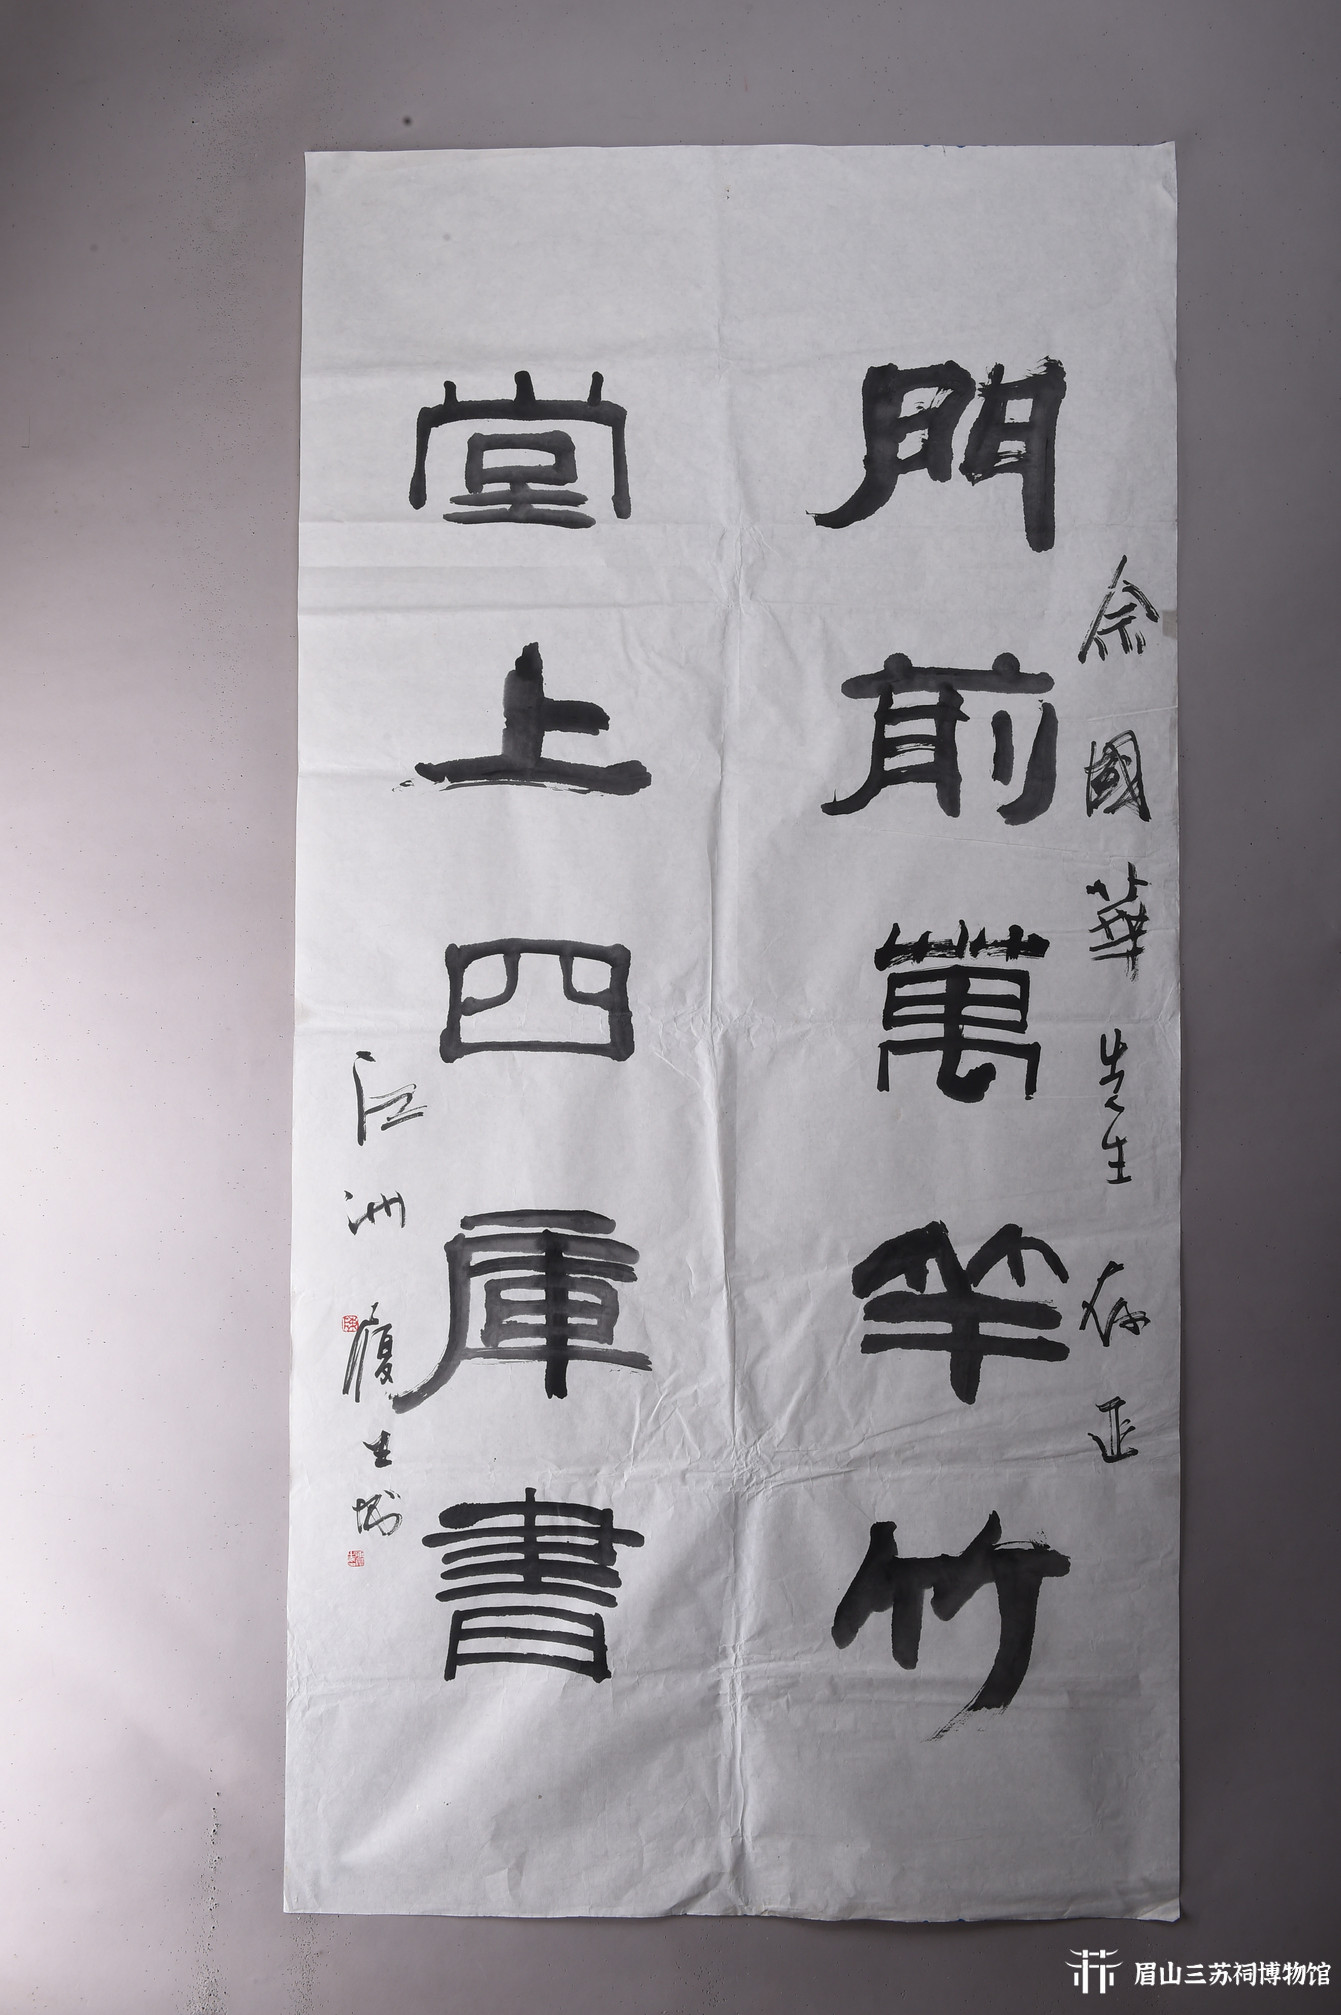 余國華先生存正
門前萬竿竹
堂上四庫書
江洲履生
眉山三苏祠博物馆